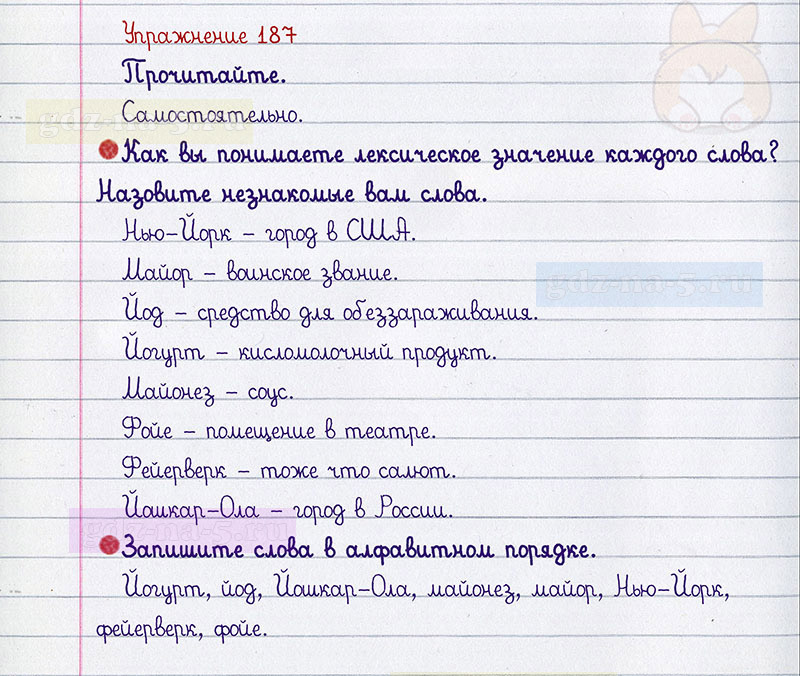 Упражнение 187
Прочитайте.
Самостоятельно.
gdz-na-5.ru
Как вы понимаете лексическое значение каждого слова?
Назовите незнакомые вам слова.
Нью-Йорк – город в США.
Майор – воинское звание.
gdz-na-5.ru
Йод – средство для обеззараживания.
Йогурт – кисломолочный продукт.
Майонез – соус.
Фойе – помещение в театре.
Фейерверк – тоже что салют.
Йошкар-Ола – город в России.
gdz-na-5.ru
Запишите слова в алфавитном порядке.
Йогурт, йод, Йошкар-Ола, майонез, майор, Нью-Йорк,
фейерверк, фойе.